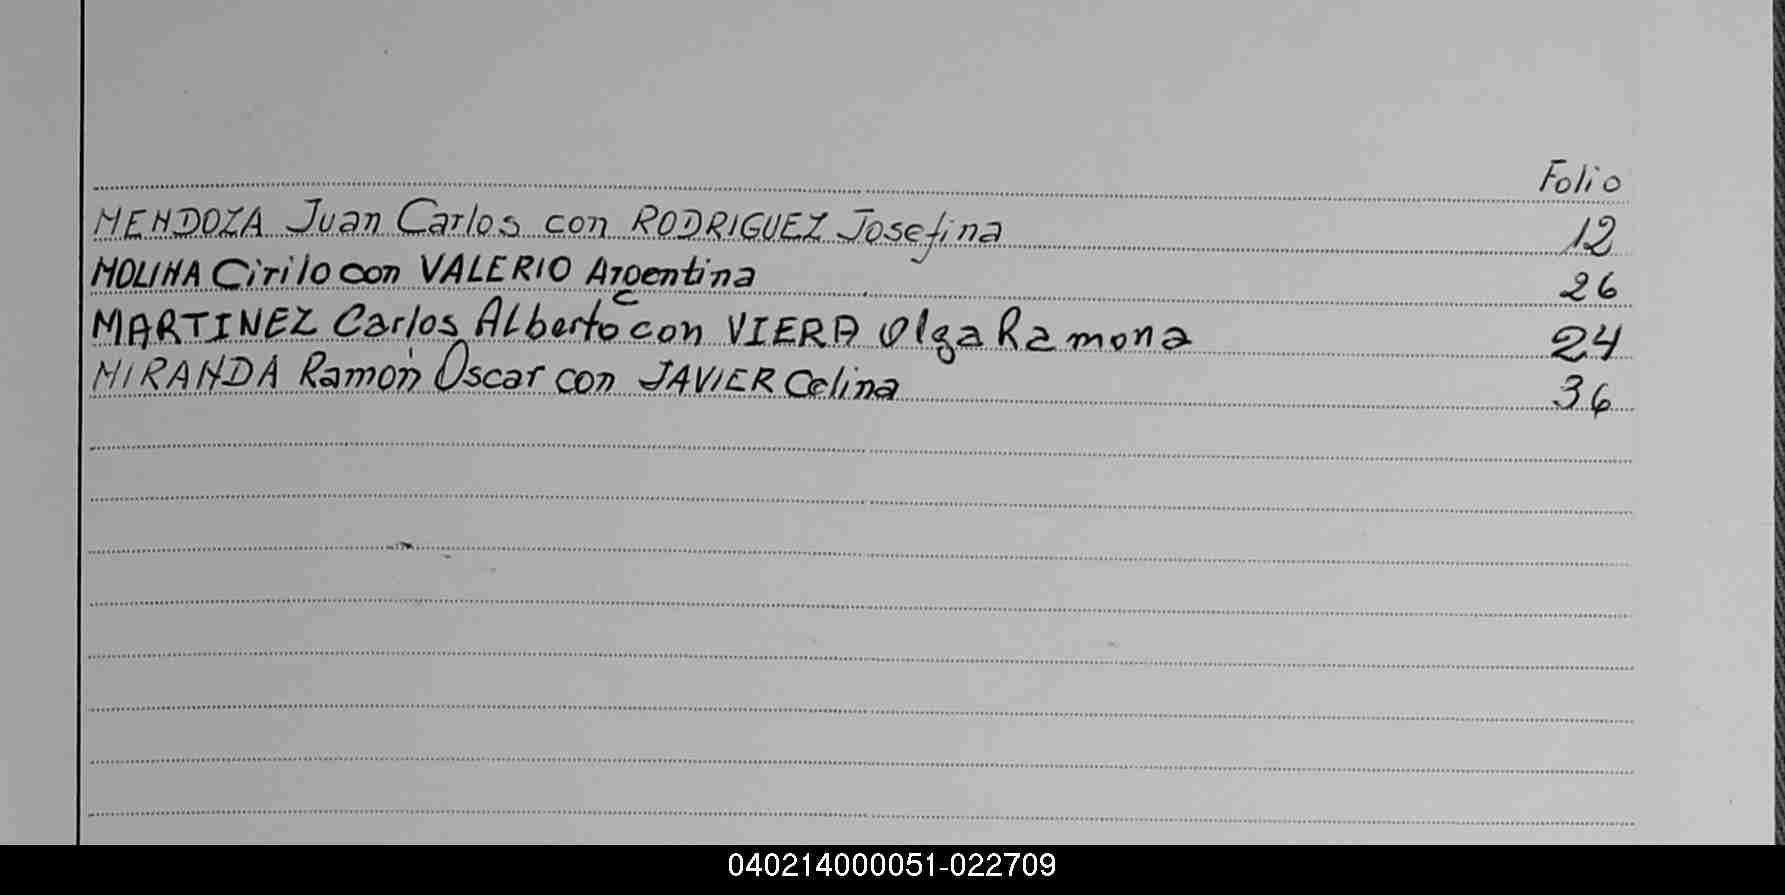 Folio
MENDOZA Juan Carlos con RODRIGUEZ Josefina 12
MOLINA Cirilo con VALERIO Argentina 26
MARTINEZ Carlos Alberto con VIERA Olga Ramona 24
MIRANDA Ramón Oscar con JAVIER Celina 36
040214000051-022709